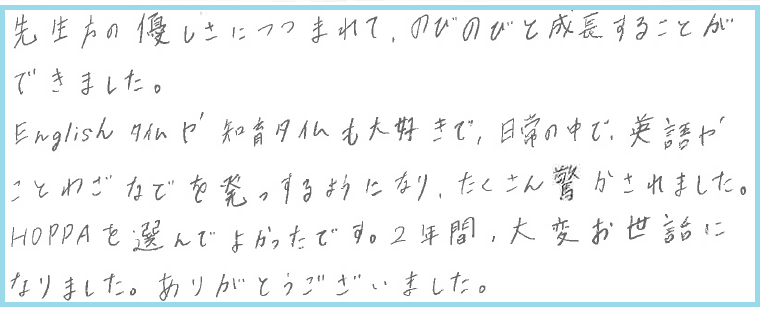 先生方の優しさにつつまれて、のびのびと成長することが
できました。
English タイムや知育タイムも大好きで、日常の中で、英語や
ことわざなどを発っするようになり、たくさん驚かされました。
HOPPAを選んでよかったです。2年間、大変お世話に
なりました。ありがとうございました。